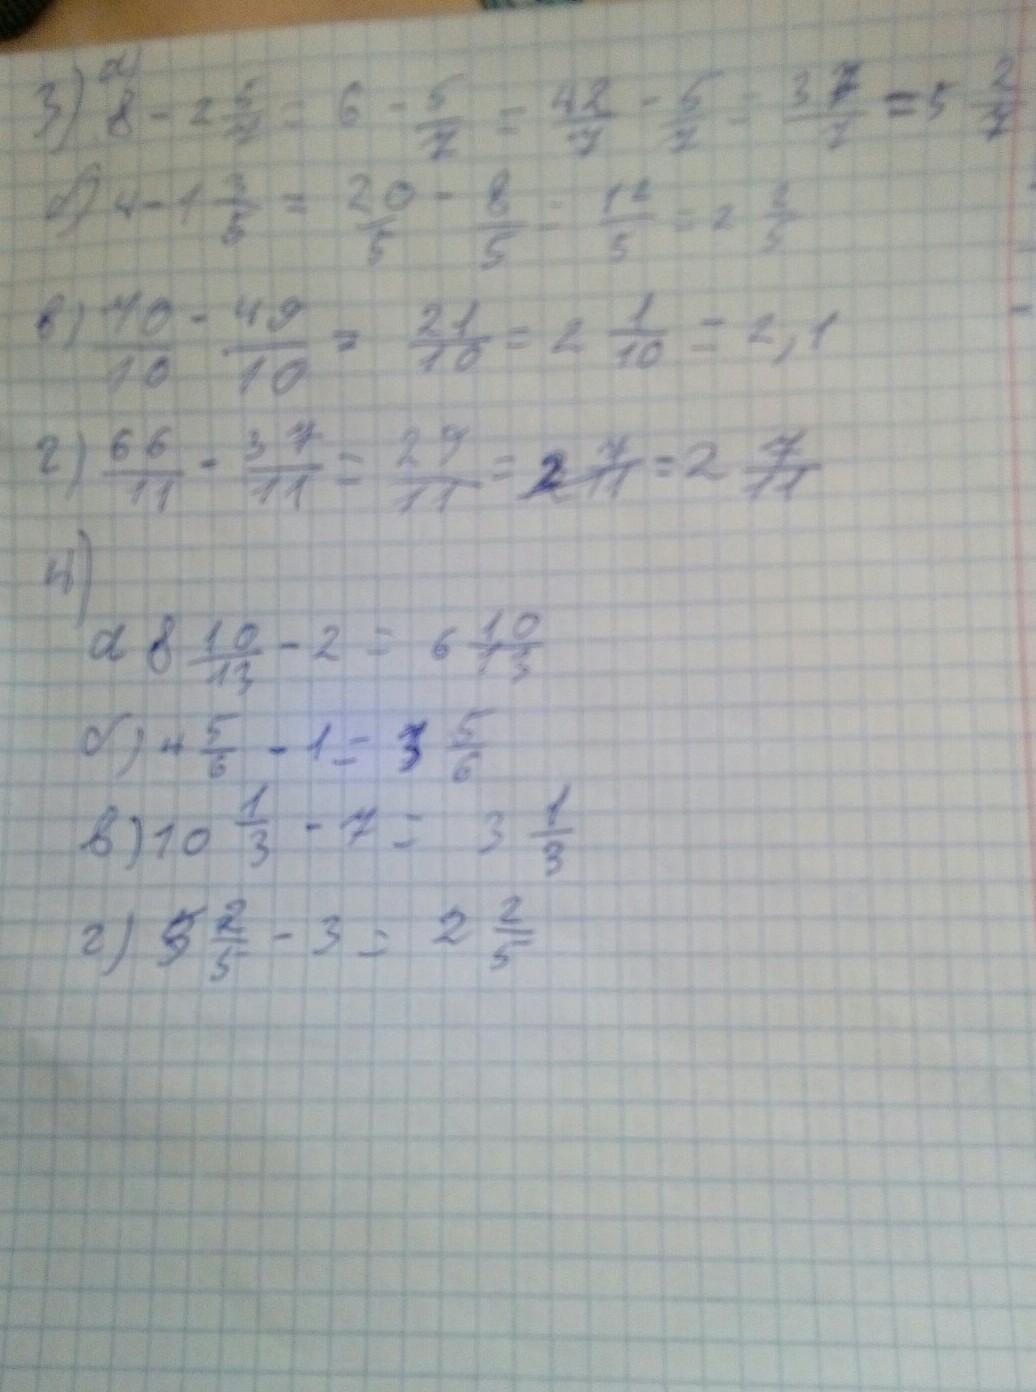 3) а)
8 - 2 5/7 = 6 - 5/7 = 42/7 - 5/7 = 37/7 = 5 2/7
б) 4 - 1 3/5 = 20/5 - 8/5 = 12/5 = 2 2/5
в) 70/10 - 49/10 = 21/10 = 2 1/10 = 2,1
г) 66/11 - 37/11 = 29/11 = 2 7/11 = 2 7/11
4)
а 8 10/13 - 2 = 6 10/13
б) 4 5/6 - 1 = 3 5/6
в) 10 1/3 - 7 = 3 1/3
г) 5 2/5 - 3 = 2 2/5